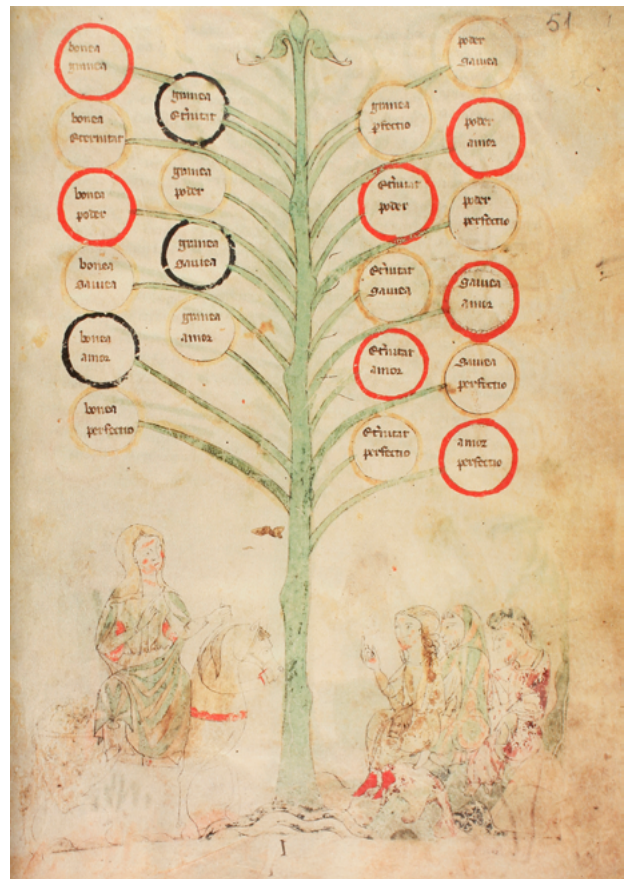 51
bonea
granea
bonea
eternitat
bonea
poder
bonea
sauiea
bonea
amor
bonea
perfectio
granea
et̃nitat
granea
poder
granea
sauiea
granea
amor
granea
pfectio
et̃nitat
poder
et̃nitat
sauiea
et̃nitat
amor
et̃nitat
perfectio
poder
sauiea
poder
amor
poder
perfectio
sauiea
amor
sauiea
perfectio
amor
perfectio
I